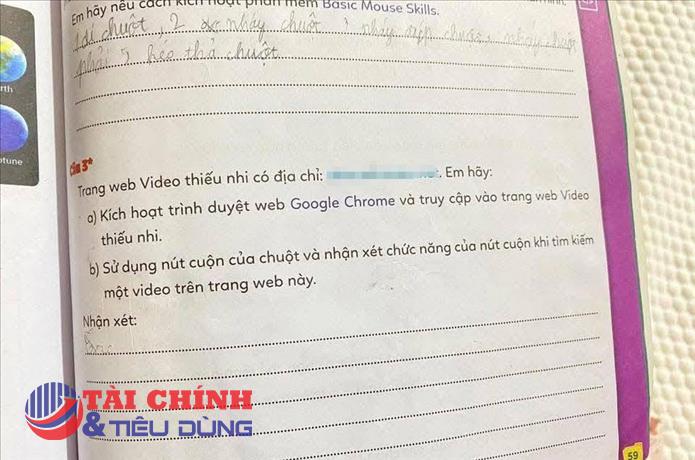 Em hãy nêu cách kích hoạt phần mềm Basic Mouse Skills.
chuột, 2 nháy chuột 3 nháy chuột
phải 5 kéo thả chuột
rth
otune
Câu 3*
Trang web Video thiếu nhi có địa chỉ: . Em hãy:
a) Kích hoạt trình duyệt web Google Chrome và truy cập vào trang web Video
thiếu nhi.
b) Sử dụng nút cuộn của chuột và nhận xét chức năng của nút cuộn khi tìm kiếm
một video trên trang web này.
Nhận xét:
TÀI CHÍNH
& TIÊU DÙNG
59